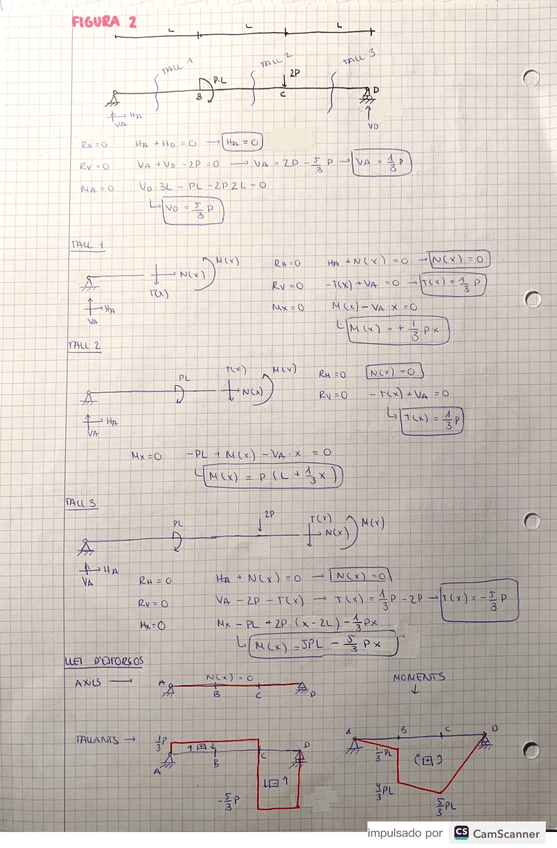 FIGURA 2
L L L
TALL 1 TALL 2 TALL 3
P·L 2P
B C D
HA
VA VD
RH=0 HA + HD = 0 → HA = 0
RV=0 VA + VD - 2P = 0 → VA = 2P - 5/3 P → VA = 1/3 P
MA=0 VD 3L - PL - 2P 2L = 0
VD = 5/3 P
TALL 1
M(x)
N(x)
T(x)
HA
VA
RH=0 HA + N(x) = 0 → N(x) = 0
RV=0 -T(x) + VA = 0 → T(x) = 1/3 P
Mx=0 M(x) - VA x = 0
M(x) = + 1/3 Px
TALL 2
PL T(x) M(x)
N(x)
HA
VA
RH=0 N(x) = 0
RV=0 -T(x) + VA = 0
T(x) = 1/3 P
Mx=0 -PL + M(x) - VA · x = 0
M(x) = P (L + 1/3 x)
TALL 3
PL 2P T(x) M(x)
N(x)
HA
VA
RH=0 HA + N(x) = 0 → N(x) = 0
RV=0 VA - 2P - T(x) → T(x) = 1/3 P - 2P → T(x) = - 5/3 P
Mx=0 Mx - PL + 2P · (x - 2L) - 1/3 Px
M(x) = 5PL - 5/3 Px
LLEI D'ESFORÇOS
AXILS → A N(x) = 0 B C D
MOMENTS
TALLANTS → 1/3 P A B C D
- 5/3 P
A B C D
1/3 PL
4/3 PL
5/3 PL
impulsado por CS CamScanner